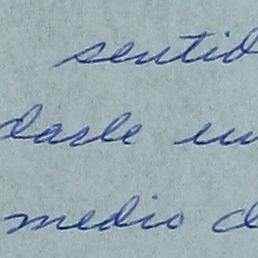 sentid
darle un
medio d